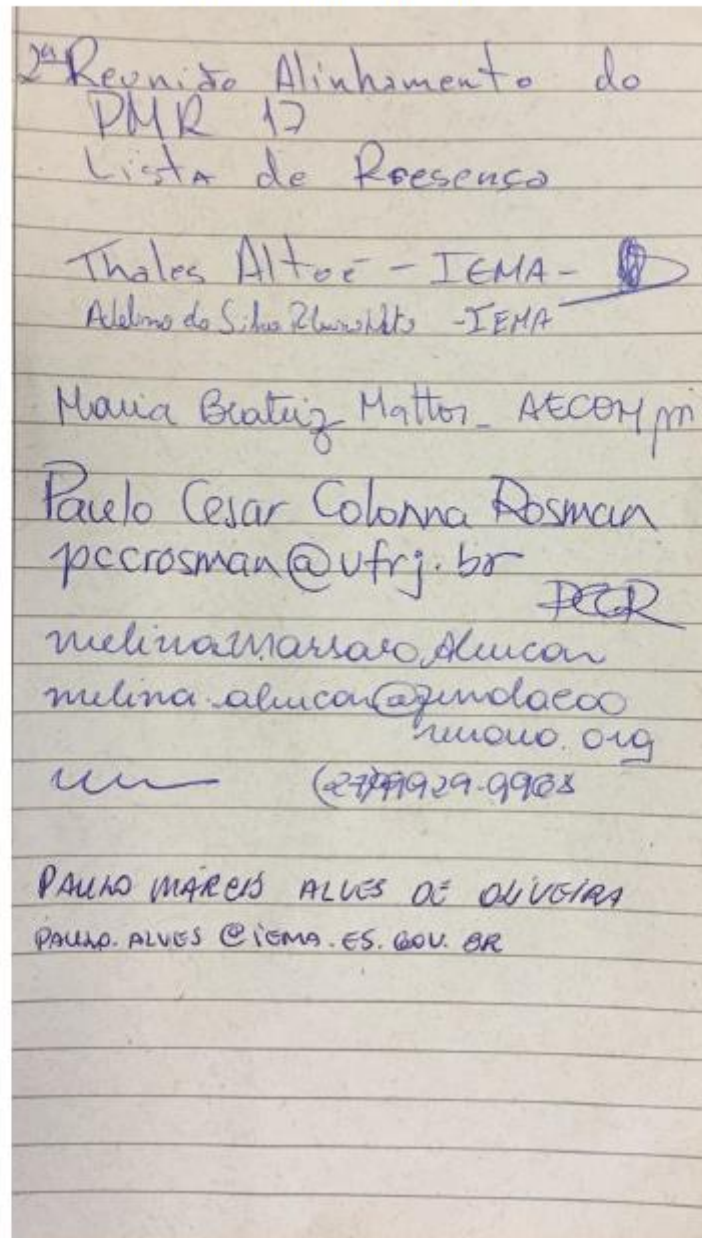 2ª Reunião Alinhamento do
PMR 17
Lista de Presença
Thales Altoé - IEMA -
Adelino da Silva Neto - IEMA
Maria Beatriz Mattos - AECOM
Paulo Cesar Colonna Rosman
pccrosman@ufrj.br
PCCR
melina marsaro Alencar
melina.alencar@fundacao
renova.org
(27)99929-9968
PAULO MÁRCIO ALVES DE OLIVEIRA
PAULO.ALVES@IEMA.ES.GOV.BR